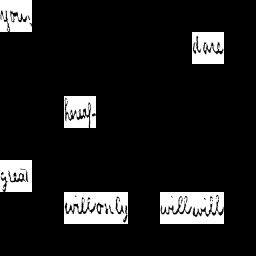 you,
dare
great
will only will will